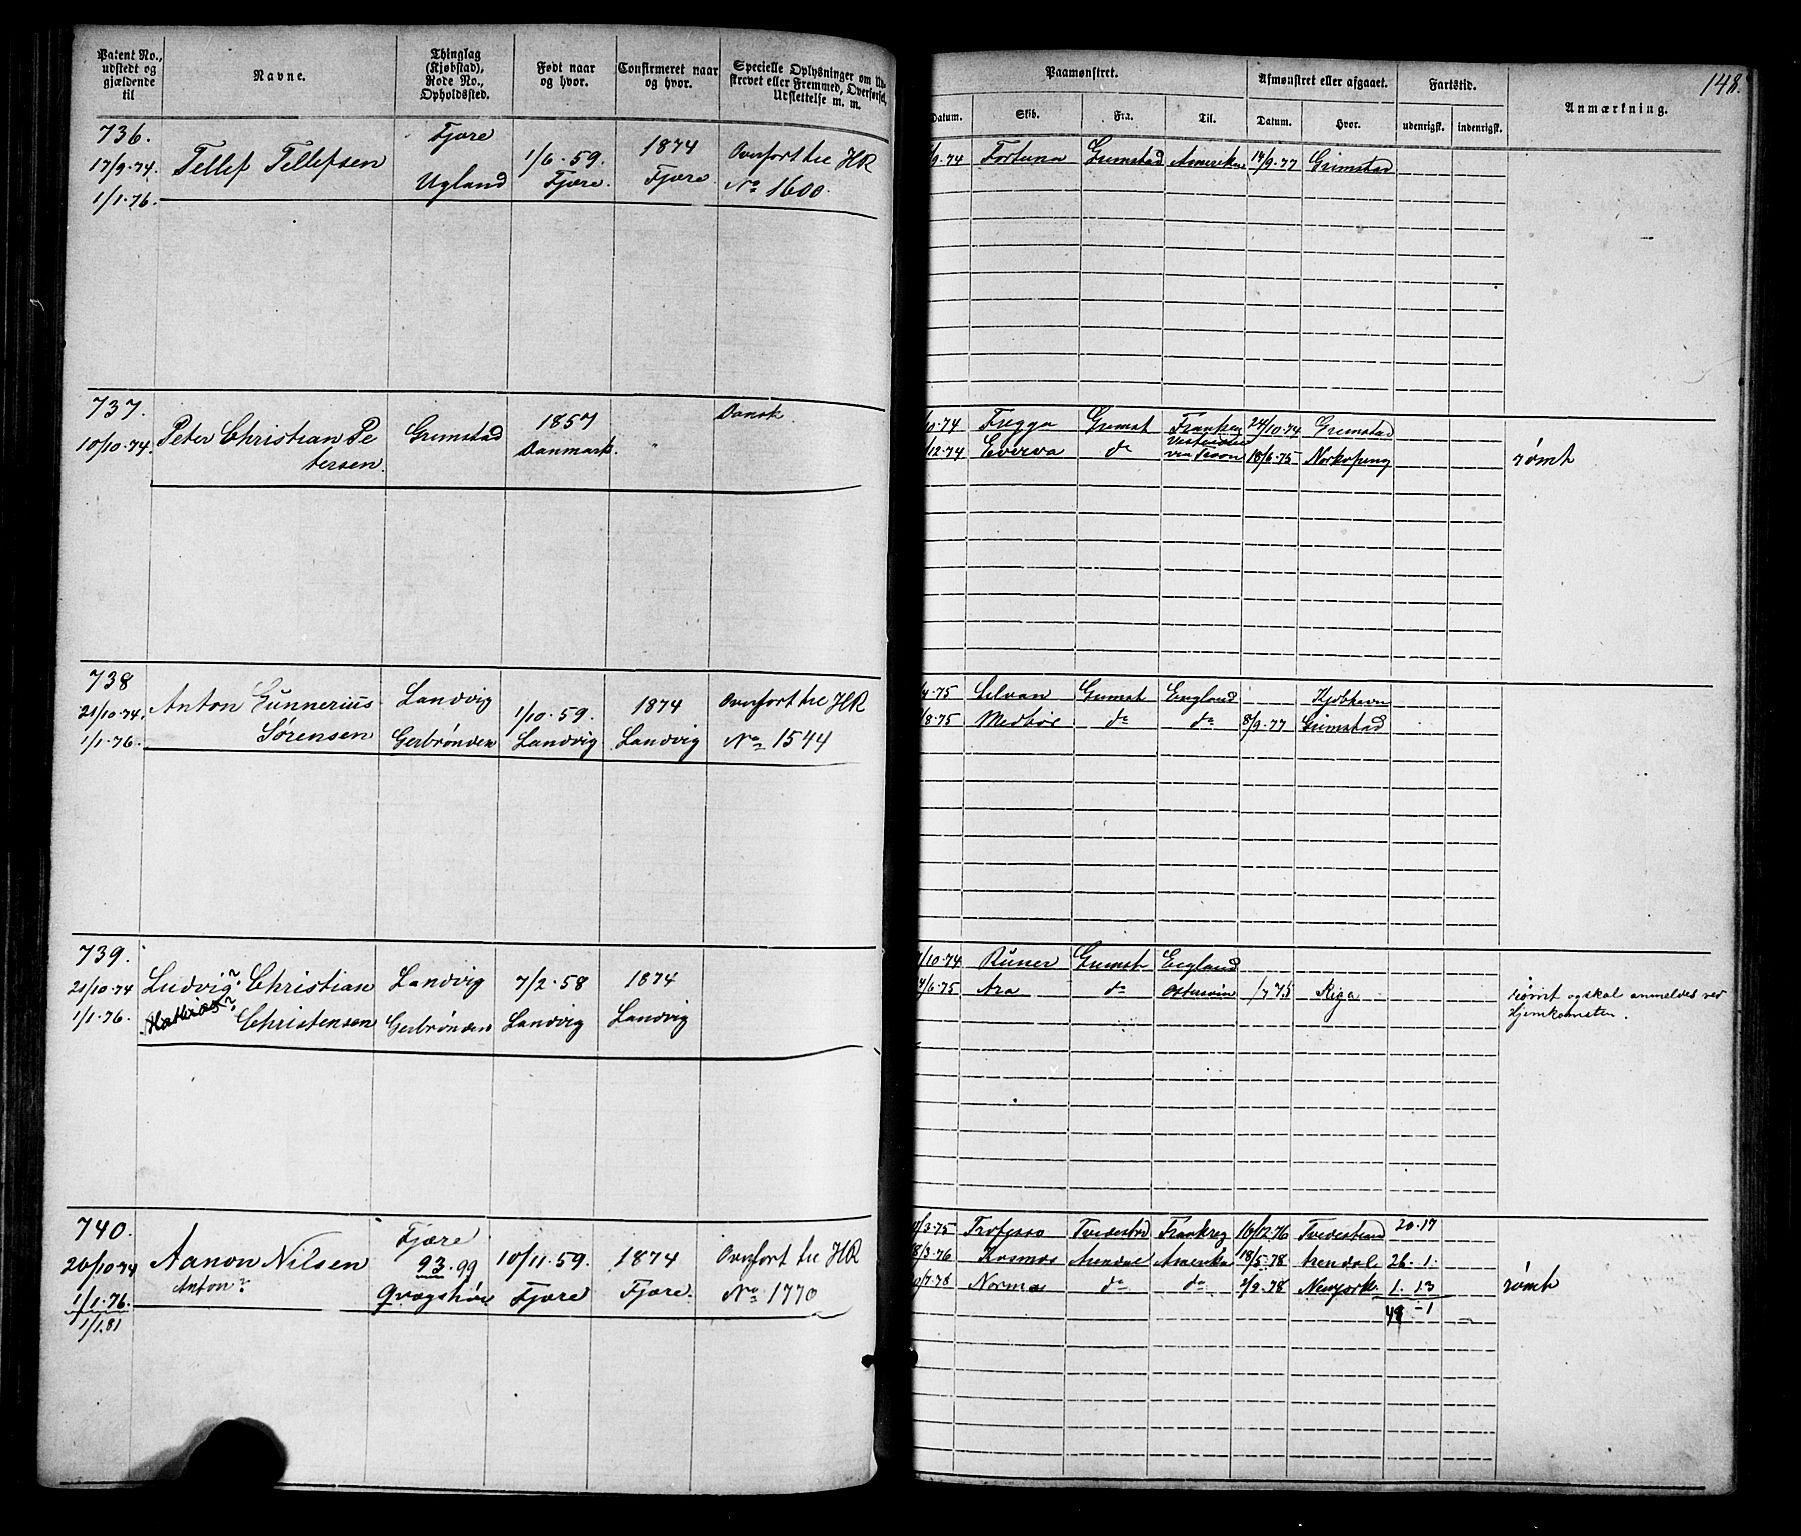 Patent No., udstedt og gjældende til
Navne.
Thinglag (Kjøbstad), Rode No., Opholdssted.
Født naar og hvor.
Confirmeret naar og hvor.
Specielle Oplysninger om Udskrevet eller Fremmed, Overførsel, Udslettelse m. m.
Paamønstret.
Afmønstret eller afgaaet.
Fartstid.
Anmærkning.
148.
Datum.
Skib.
Fra.
Til.
Datum.
Hvor.
udenrigsk.
indenrigsk.
736.
17/9.74
1/1.76.
Tellef Tellefsen
Fjære
Ugland
1/6.59.
Fjære.
1874
Fjære.
Overfort til HR
No 1600.
/9.74 Fortuna Grimstad Amerika 14/9.77 Grimstad
737.
10/10.74.
Peter Christian Pe
tersen.
Grimstad
1857
Danmark.
"
Dansk
/10.74 Freggo Grimst Frankrig 24/10.74 Grimstad
/12.74 d° 18/6.75 Norkøping
rømt
738
21/10.74.
1/1.76.
Anton Gunnerius
Sørensen
Landvig
Gerbrønden
1/10.59.
Landvig
1874
Landvig
Overfort til HR
No 1544
/4.75 Silvan Grimst England Kjøbhavn
/8.75 Medbør d° d° 8/9.77 Grimstad
739.
21/10.74
1/1.76.
Ludvig Christian
Christensen
Landvig
Gerbrønden
7/2.58
Landvig
1874
Landvig
/10.74 Runer Grimst England
/6.75 Ara d° Østersøen /7 75 Riga
rømt og skal anmeldes ved
Hjemkomsten.
740.
26/10.74
1/1.76.
1/1.81
Aanon Nilsen
Anton?
Fjære
93.99
10/11.59.
Fjære
1874
Fjære.
Overfort til HR
No 1770
/3.75 Professo Tvedestrd Frankrig 16/12.76 Tvedestrand 20.17
18/3.76 Kosmos Arendal Amerika 18/5.78 Arendal 26.1.
/7.78 Norma d° d° 2/9.78 Newyork. 1.13
48 – 1
rømt